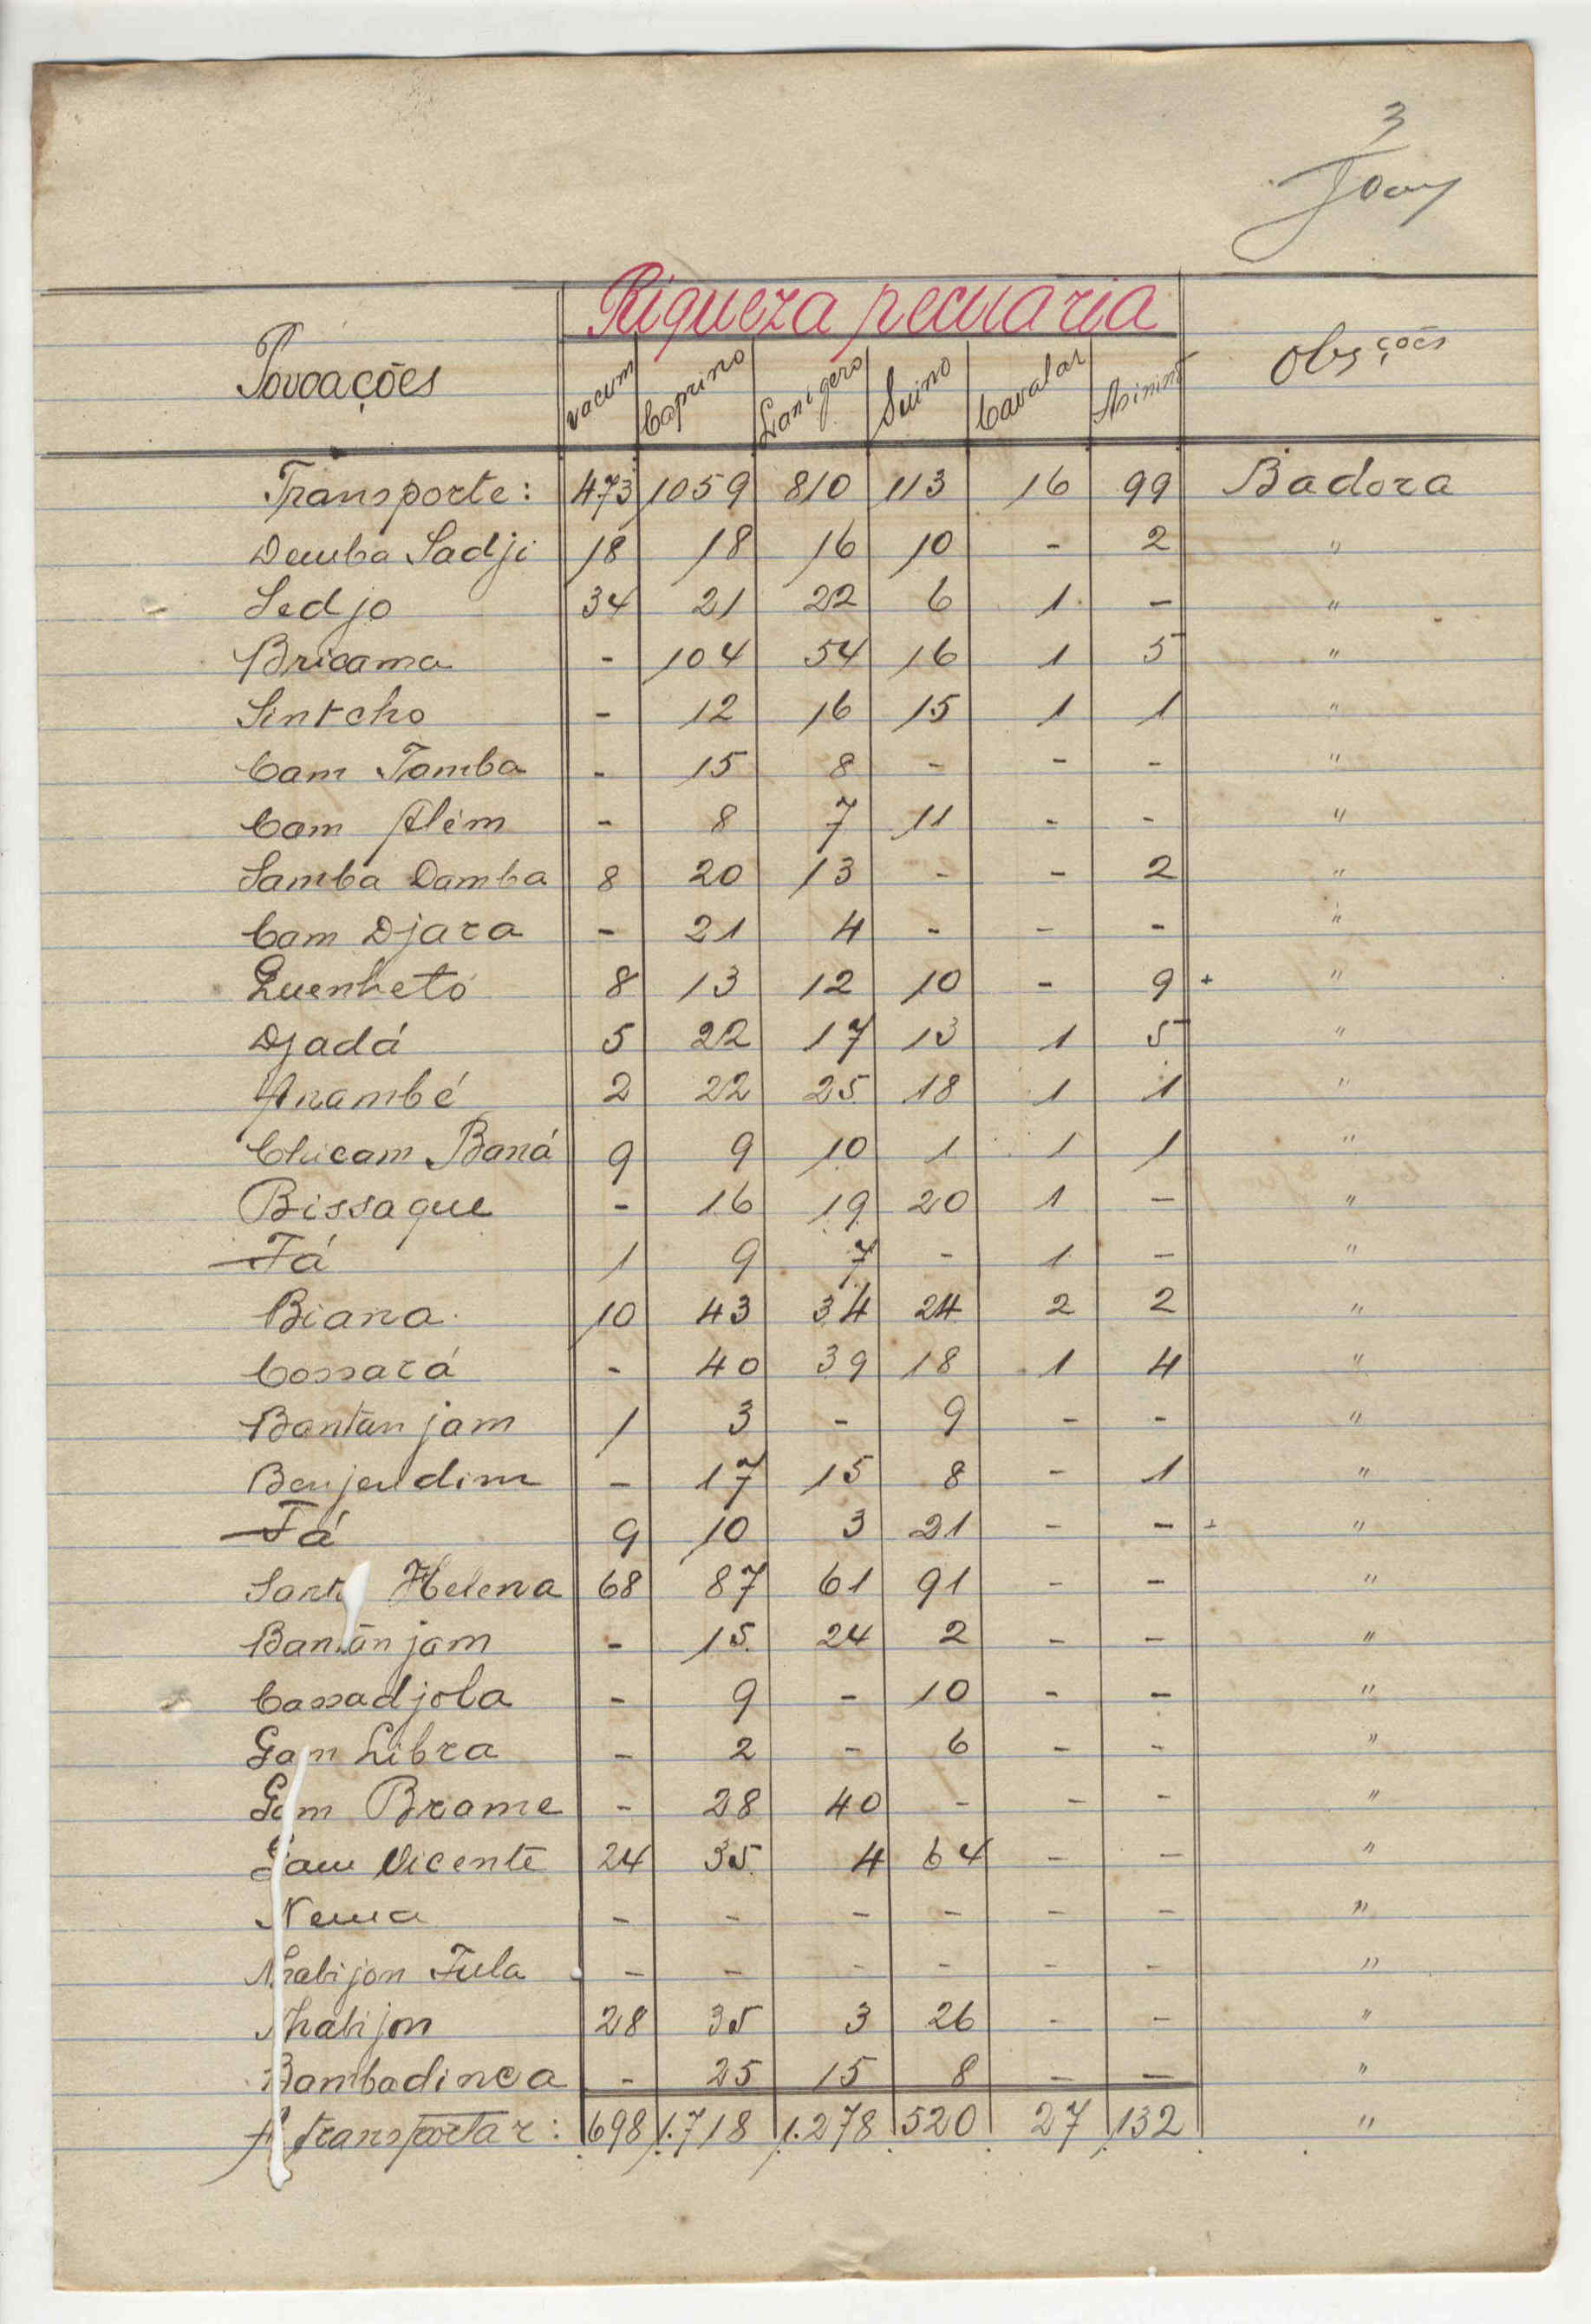 3
Riqueza pecuaria
Povoações vacum Caprino Lanigero Suino Cavalar Asinino Obsções
Transporte: 473 1059 810 113 16 99 Badora
Demba Sadji 18 18 16 10 - 2 "
Sedjo 34 21 22 6 1 - "
Bricama - 104 54 16 1 5 "
Sintcho - 12 16 15 1 1 "
Cam Tamba - 15 8 - - - "
Cam Além - 8 7 11 - - "
Samba Damba 8 20 13 - - 2 "
Cam Djara - 21 4 - - - "
Quenhetó 8 13 12 10 - 9 + "
Djadá 5 22 17 13 1 5 "
Anambé 2 22 25 18 1 1 "
Chicam Baná 9 9 10 1 1 1 "
Bissaque - 16 19 20 1 - "
Fá 1 9 7 - 1 - "
Biana 10 43 34 24 2 2 "
Cossará - 40 39 18 1 4 "
Bantanjam 1 3 - 9 - - "
Benjendim - 17 15 8 - 1 "
Fá 9 10 3 21 - - + "
Helena 68 87 61 91 - - "
Bantanjam - 15 24 2 - - "
Cassadjola - 9 - 10 - - "
Gam Libra - 2 - 6 - - "
Gam Brame - 28 40 - - - "
Gam Vicente 24 35 4 64 - - "
Nema - - - - - - "
Nhabijon Fula - - - - - - "
Nhabijon 28 35 3 26 - - "
Bambadinca - 25 15 8 - - "
A transportar: 698 1.718 1.278 520 27 132 "